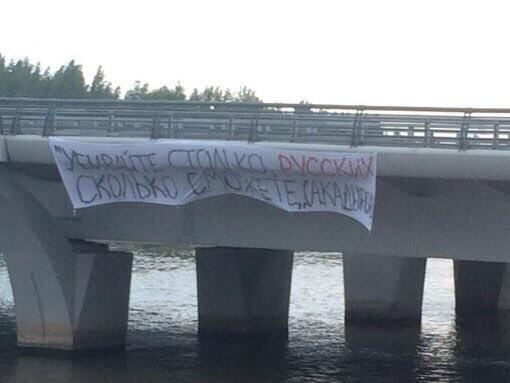 "УБИВАЙТЕ СТОЛЬКО, РУССКИХ
СКОЛЬКО СМОЖЕТЕ"